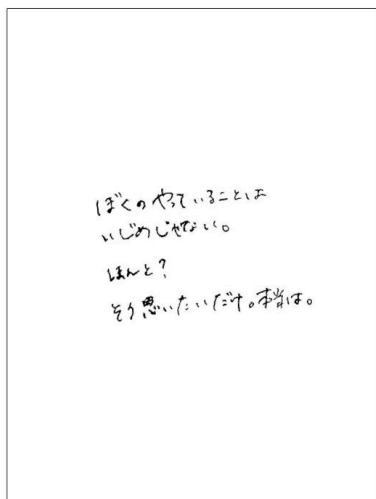 ぼくのやっていることは
いじめじゃない。
ほんと？
そう思いたいだけ。本当は。